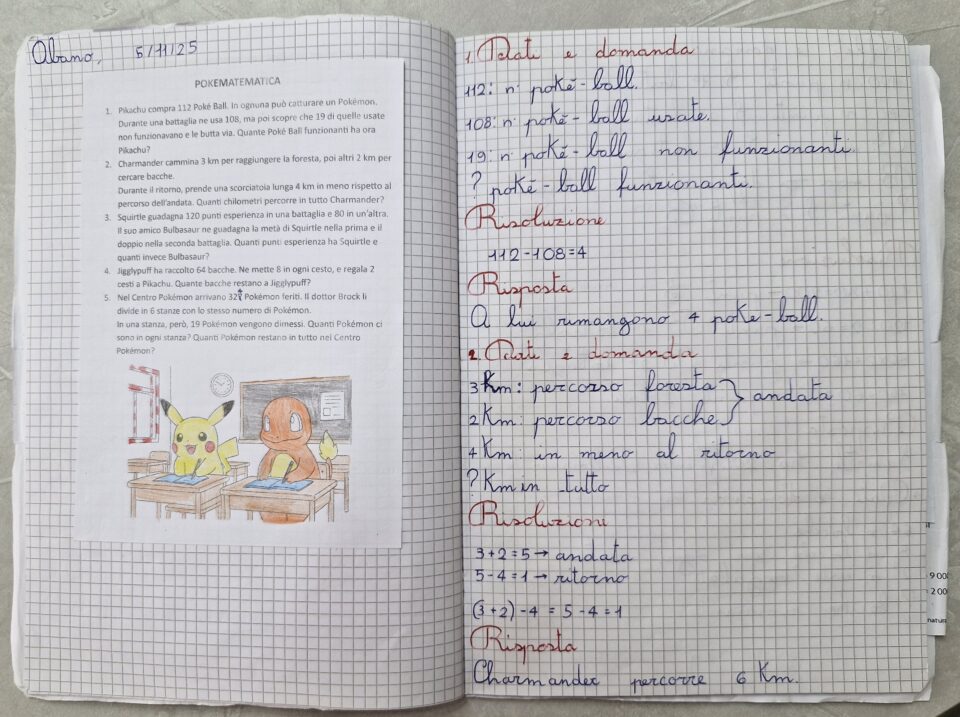 Abano, 5/11/25
POKEMATEMATICA
1. Pikachu compra 112 Poké Ball. In ognuna può catturare un Pokémon.
Durante una battaglia ne usa 108, ma poi scopre che 19 di quelle usate
non funzionavano e le butta via. Quante Poké Ball funzionanti ha ora
Pikachu?
2. Charmander cammina 3 km per raggiungere la foresta, poi altri 2 km per
cercare bacche.
Durante il ritorno, prende una scorciatoia lunga 4 km in meno rispetto al
percorso dell'andata. Quanti chilometri percorre in tutto Charmander?
3. Squirtle guadagna 120 punti esperienza in una battaglia e 80 in un'altra.
Il suo amico Bulbasaur ne guadagna la metà di Squirtle nella prima e il
doppio nella seconda battaglia. Quanti punti esperienza ha Squirtle e
quanti invece Bulbasaur?
4. Jigglypuff ha raccolto 64 bacche. Ne mette 8 in ogni cesto, e regala 2
cesti a Pikachu. Quante bacche restano a Jigglypuff?
5. Nel Centro Pokémon arrivano 32 Pokémon feriti. Il dottor Brock li
divide in 6 stanze con lo stesso numero di Pokémon.
In una stanza, però, 19 Pokémon vengono dimessi. Quanti Pokémon ci
sono in ogni stanza? Quanti Pokémon restano in tutto nel Centro
Pokémon?
1. Dati e domanda
112: n° poké-ball.
108: n° poké-ball usate.
19: n° poké-ball non funzionanti.
? poké-ball funzionanti.
Risoluzione
112-108=4
Risposta
A lui rimangono 4 poké-ball.
2. Dati e domanda
3 Km: percorso foresta } andata
2 Km: percorso bacche
4 Km: in meno al ritorno
? Km in tutto
Risoluzione
3+2=5→ andata
5-4=1→ ritorno
(3+2)-4 = 5-4=1
Risposta
Charmander percorre 6 Km.
9 00
2 00
natur